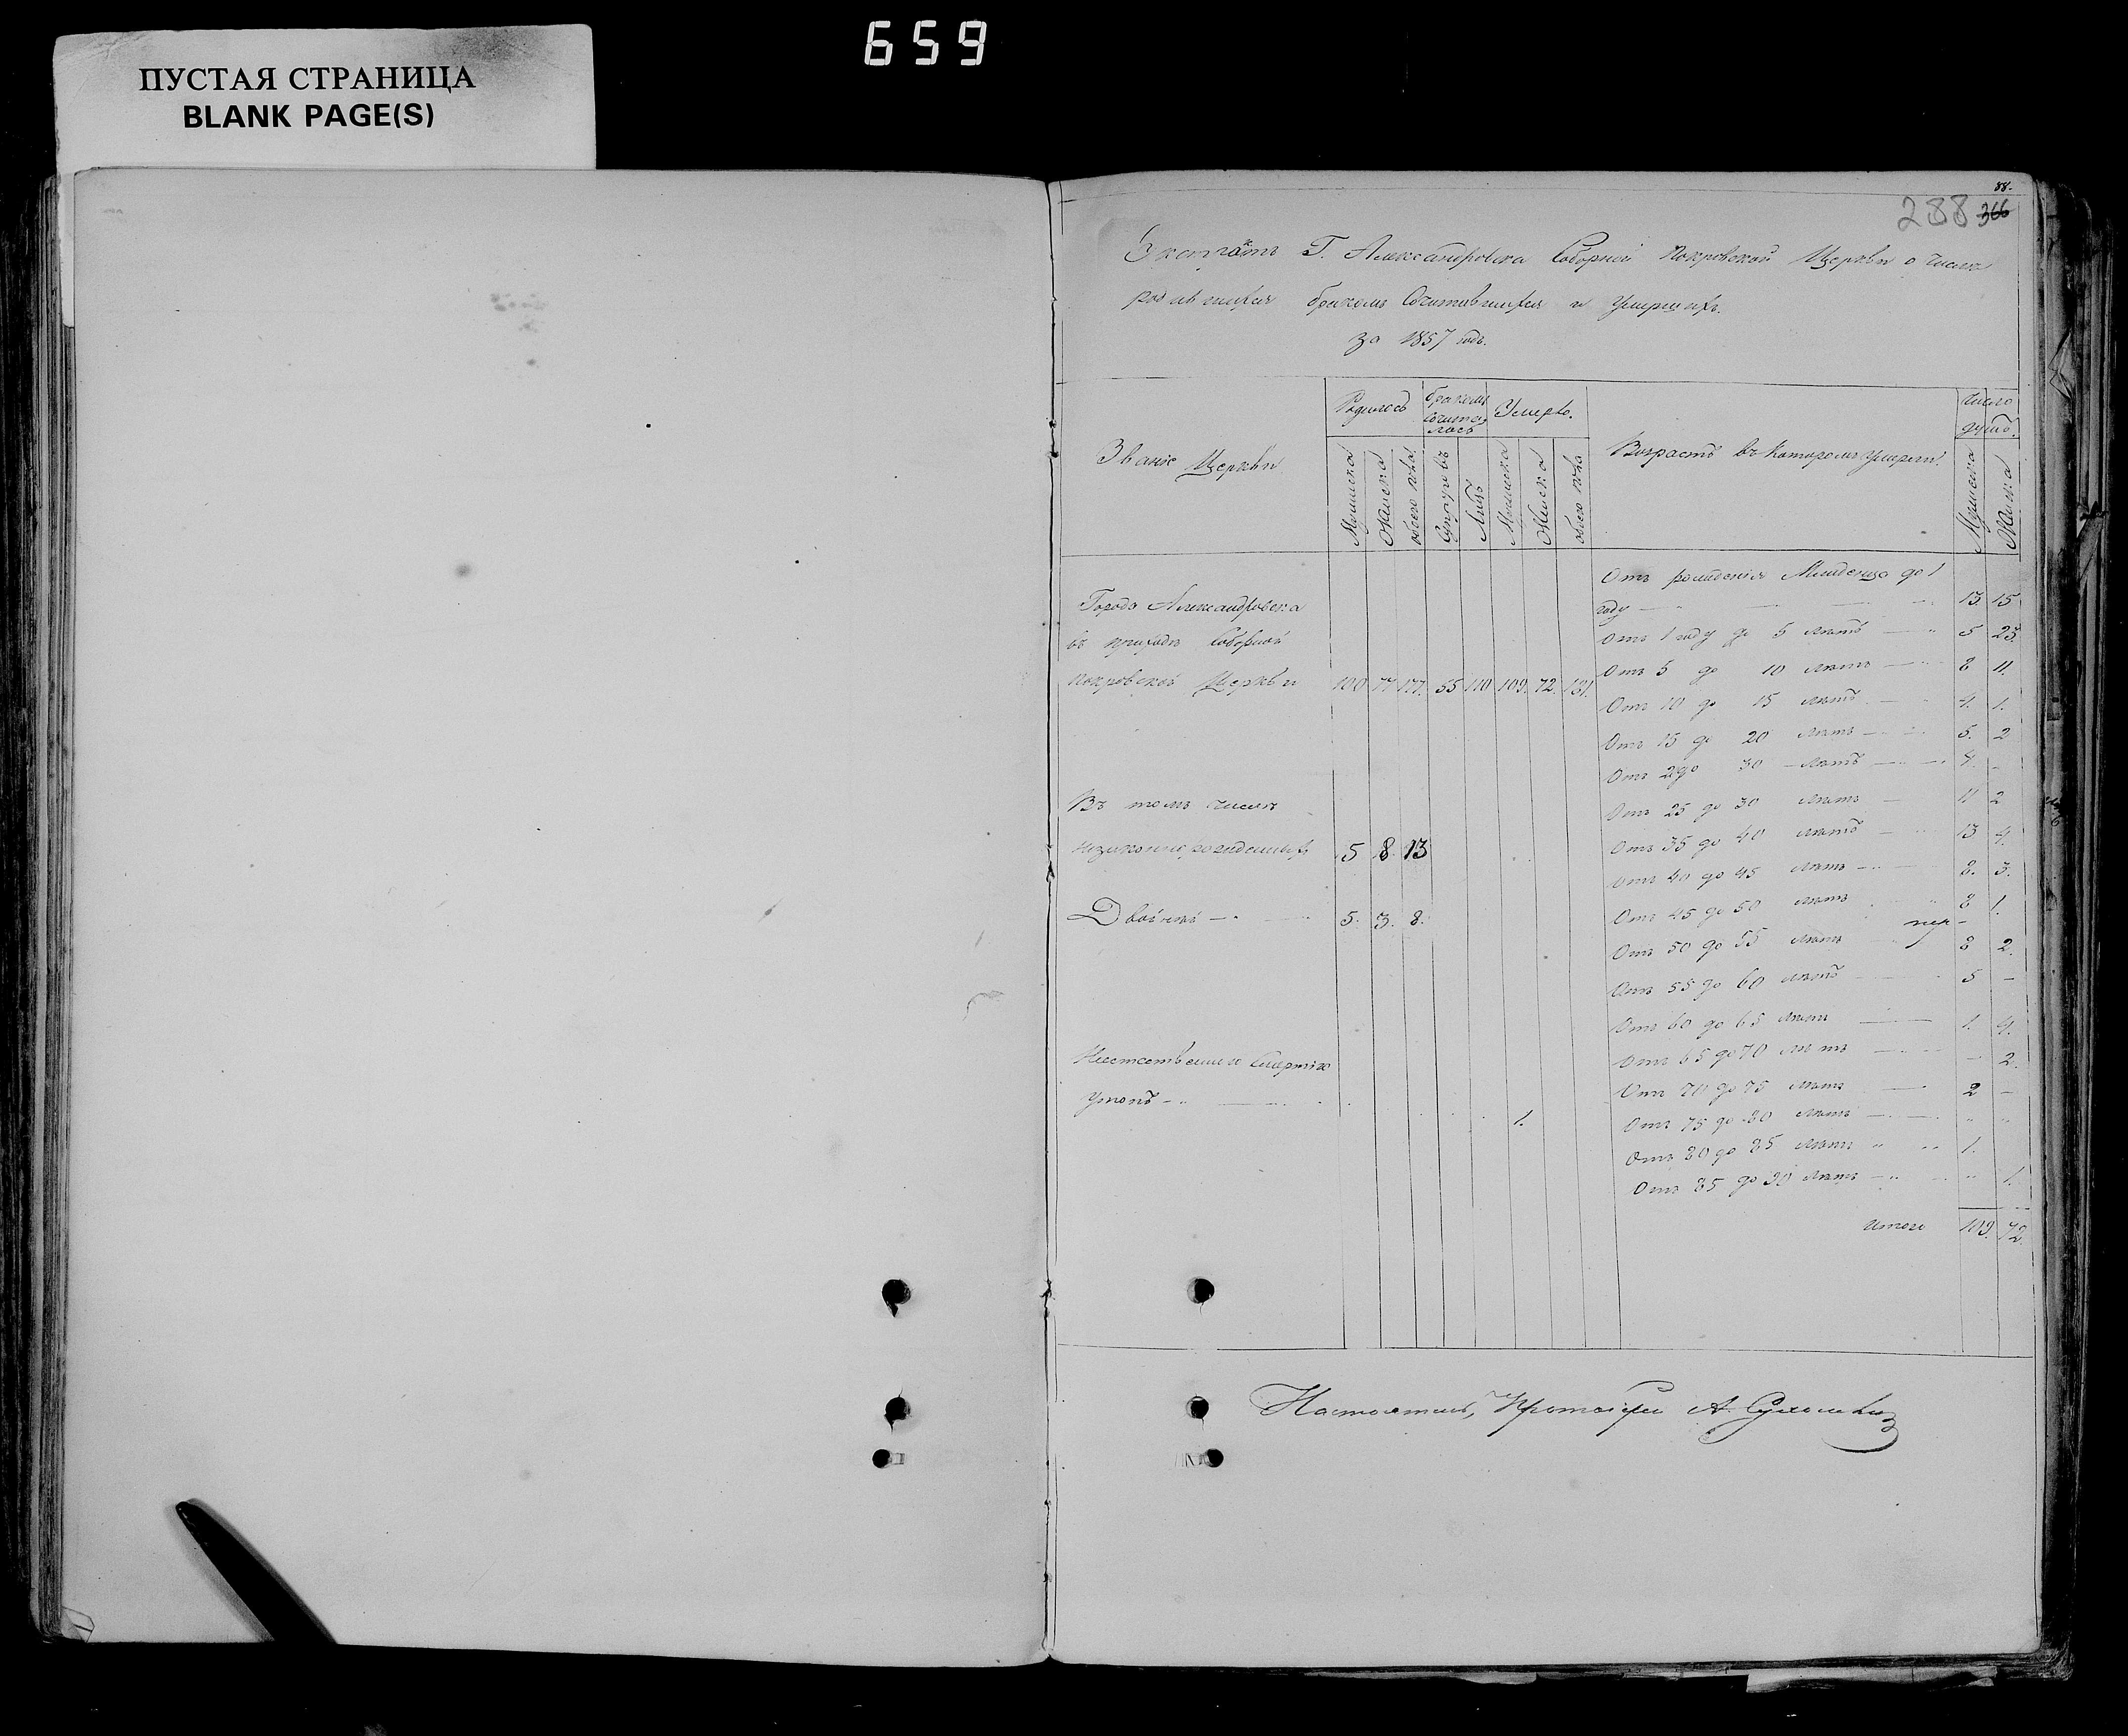 659
ПУСТАЯ СТРАНИЦА
BLANK PAGE(S)
88.
288 366
Экстрактъ Г. Александровска Соборной Покровской Церкви о числѣ
родившихся бракомъ сочитавшихся и умершихъ.
за 1857 годъ.
Званіе Церкви
Родилось
бракомъ сочиталось
Умерло.
Возрастъ въ которомъ умерли.
число душъ.
Мужеска
Женска
обоего пола
Супруговъ
Лицъ
Мужеска
Женска
обоего пола
Мужеска
Женска
Города Александровска
въ приходѣ Соборной
Покровской Церкви 100 77 177. 55 110 109. 72. 181.
Въ томъ числѣ
незаконнорожденныхъ 5 8. 13
Двойнѣ 5. 3. 8.
Неестественною смертію
Утопъ 1.
Отъ рожденія Младенца до 1
году 13. 15
Отъ 1 году до 5 лѣтъ 5 23.
Отъ 5 до 10 лѣтъ 8 11.
Отъ 10 до 15 лѣтъ 4. 1.
Отъ 15 до 20 лѣтъ 5. 2
Отъ до 30 лѣтъ –
Отъ 25 до 30 лѣтъ 11 2
Отъ 35 до 40 лѣтъ 13 4.
Отъ 40 до 45 лѣтъ 8. 3.
Отъ 45 до 50 лѣтъ 8 1.
Отъ 50 до 55 лѣтъ 8 2.
Отъ 55 до 60 лѣтъ 5 –
Отъ 60 до 65 лѣтъ 1. 4.
Отъ 65 до 70 лѣтъ – 2.
Отъ 70 до 75 лѣтъ 2 –
Отъ 75 до 80 лѣтъ
Отъ 80 до 85 лѣтъ 1.
Отъ 85 до 90 лѣтъ 1.
Итого 109. 72.
Настоятель, Протоіерей А.